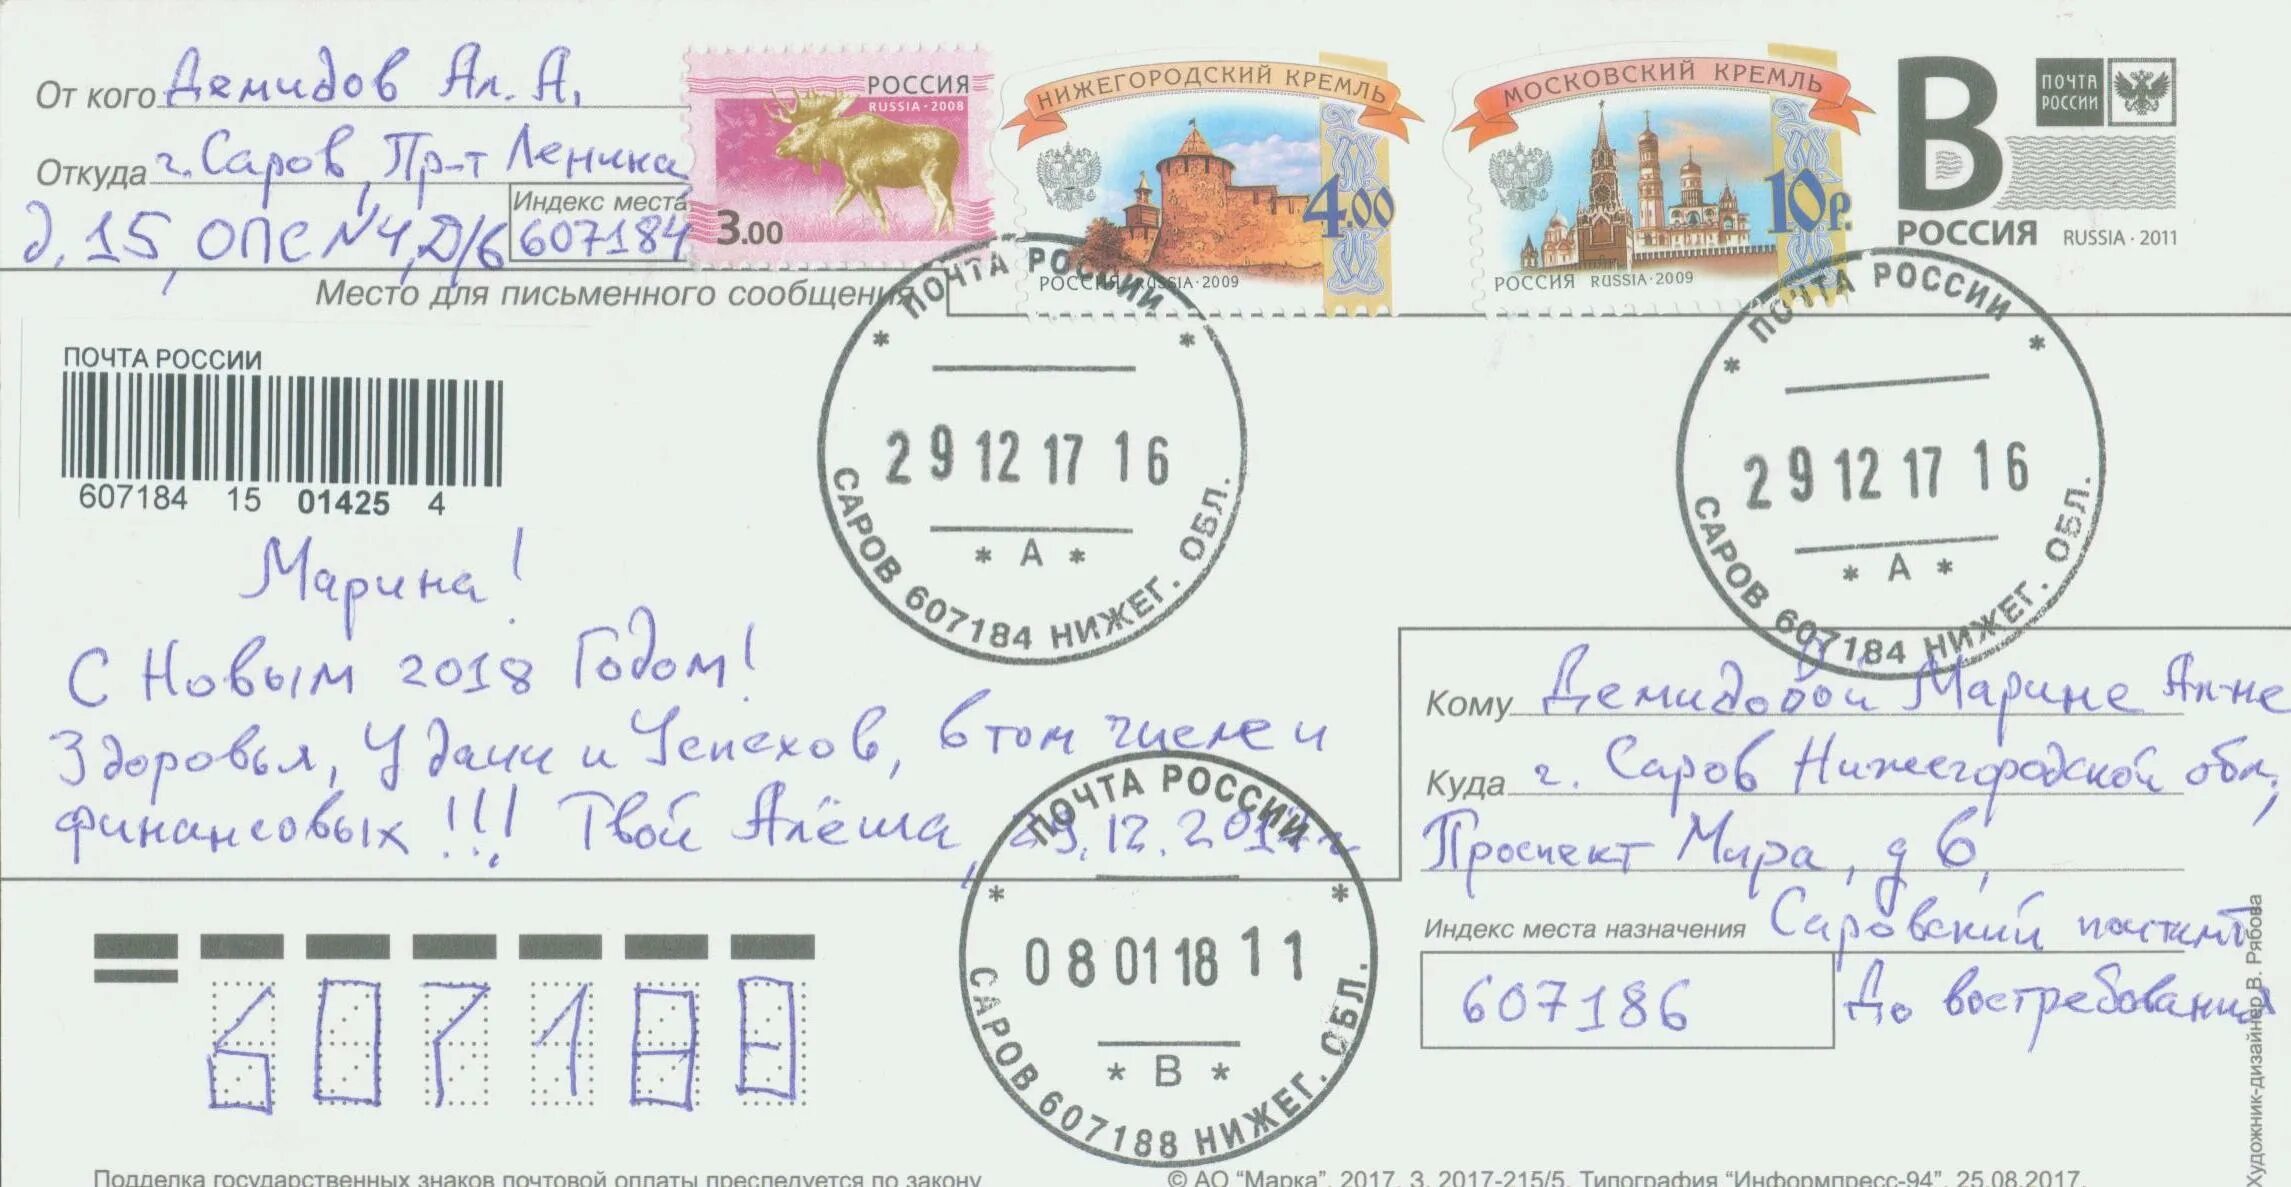 От кого Демидов Ал. А.
Откуда г. Саров, Пр-т Ленина
д. 15, ОПС №4, Д/б
Индекс места
607184
РОССИЯ
RUSSIA • 2008
3.00
НИЖЕГОРОДСКИЙ КРЕМЛЬ
4.00
РОССИЯ RUSSIA • 2009
МОСКОВСКИЙ КРЕМЛЬ
10 р.
РОССИЯ RUSSIA • 2009
B
РОССИЯ
ПОЧТА
РОССИИ
RUSSIA • 2011
Место для письменного сообщения
ПОЧТА РОССИИ
607184 15 01425 4
* ПОЧТА РОССИИ *
29 12 17 16
* А *
САРОВ 607184 НИЖЕГ. ОБЛ.
* ПОЧТА РОССИИ *
29 12 17 16
* А *
САРОВ 607184 НИЖЕГ. ОБЛ.
Марина!
С Новым 2018 Годом!
Здоровья, Удачи и Успехов, в том числе и
финансовых!!! Твой Алёша, 29.12.2017г.
Кому Демидовой Марине Ал-не
Куда г. Саров Нижегородской обл,
Проспект Мира, д 6,
Индекс места назначения Саровский почтамт
607186 До востребования
* ПОЧТА РОССИИ *
08 01 18 11
* В *
САРОВ 607188 НИЖЕГ. ОБЛ.
607186
Подделка государственных знаков почтовой оплаты преследуется по закону
© АО "Марка", 2017. З. 2017-215/5. Типография "Информпресс-94". 25.08.2017.
Художник-дизайнер В. Рябова